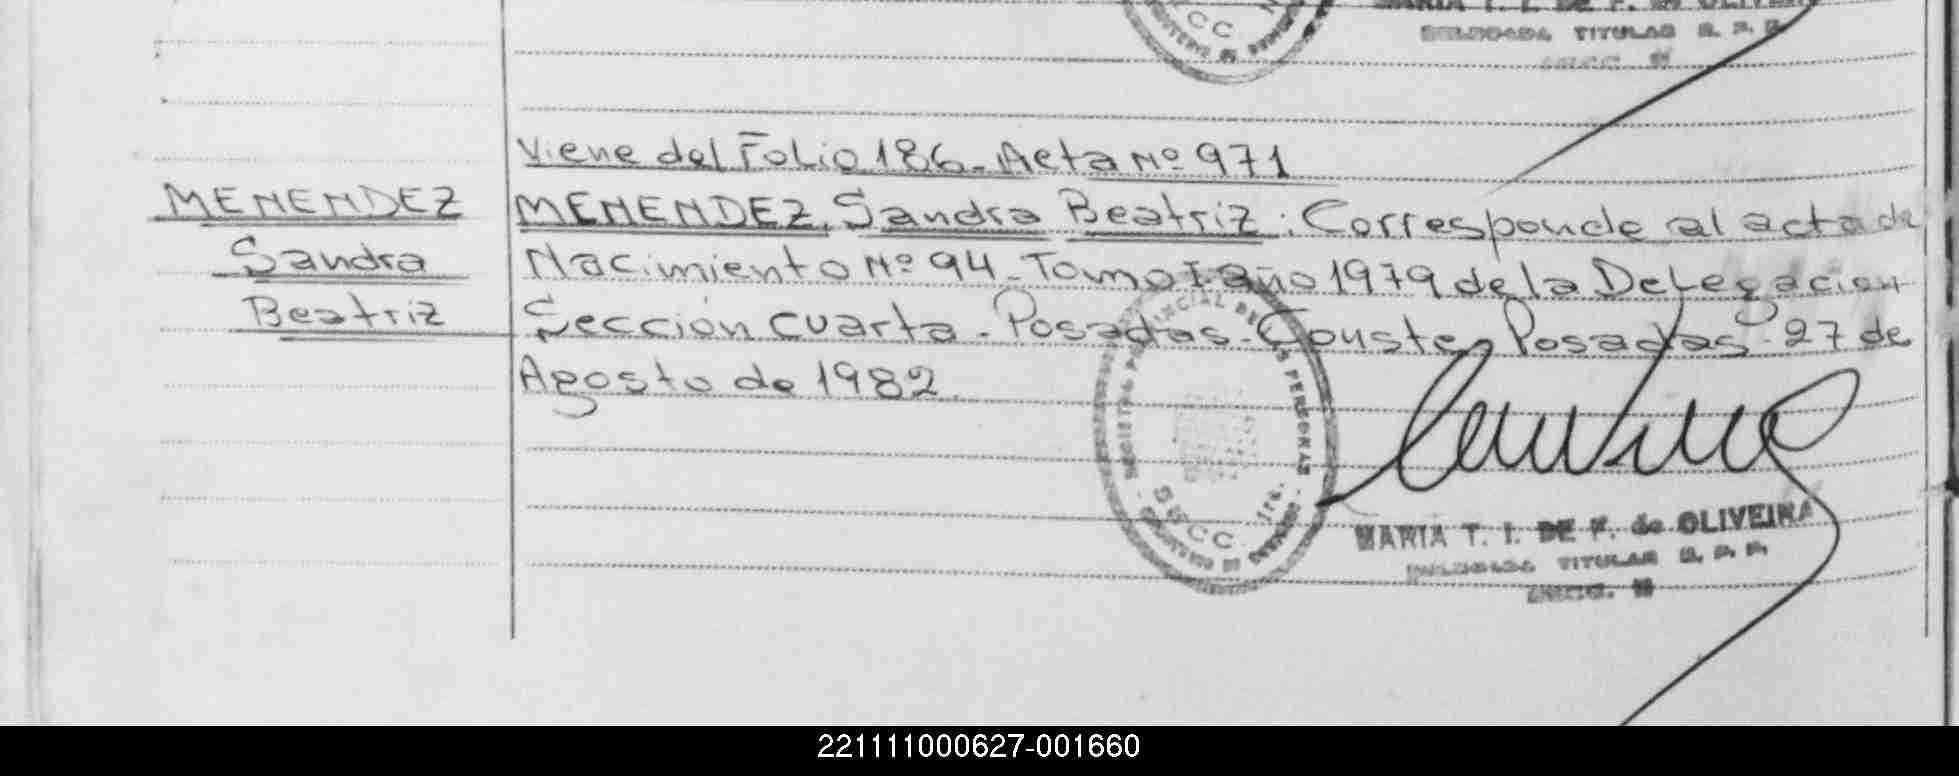 MARIA T. I. DE F. de OLIVEIRA
DELEGADA TITULAR R. P. P.
Viene del Folio 186 - Acta Nº 971
MENENDEZ
Sandra
Beatriz
MENENDEZ, Sandra Beatriz : Corresponde al acta de
Nacimiento Nº 94 - Tomo I año 1979 de la Delegacion
Sección cuarta - Posadas - Conste, Posadas - 27 de
Agosto de 1982.
REGISTRO PROVINCIAL DE LAS PERSONAS
SECC. 1ra.
MARIA T. I. DE F. de OLIVEIRA
DELEGADA TITULAR R. P. P.
221111000627-001660